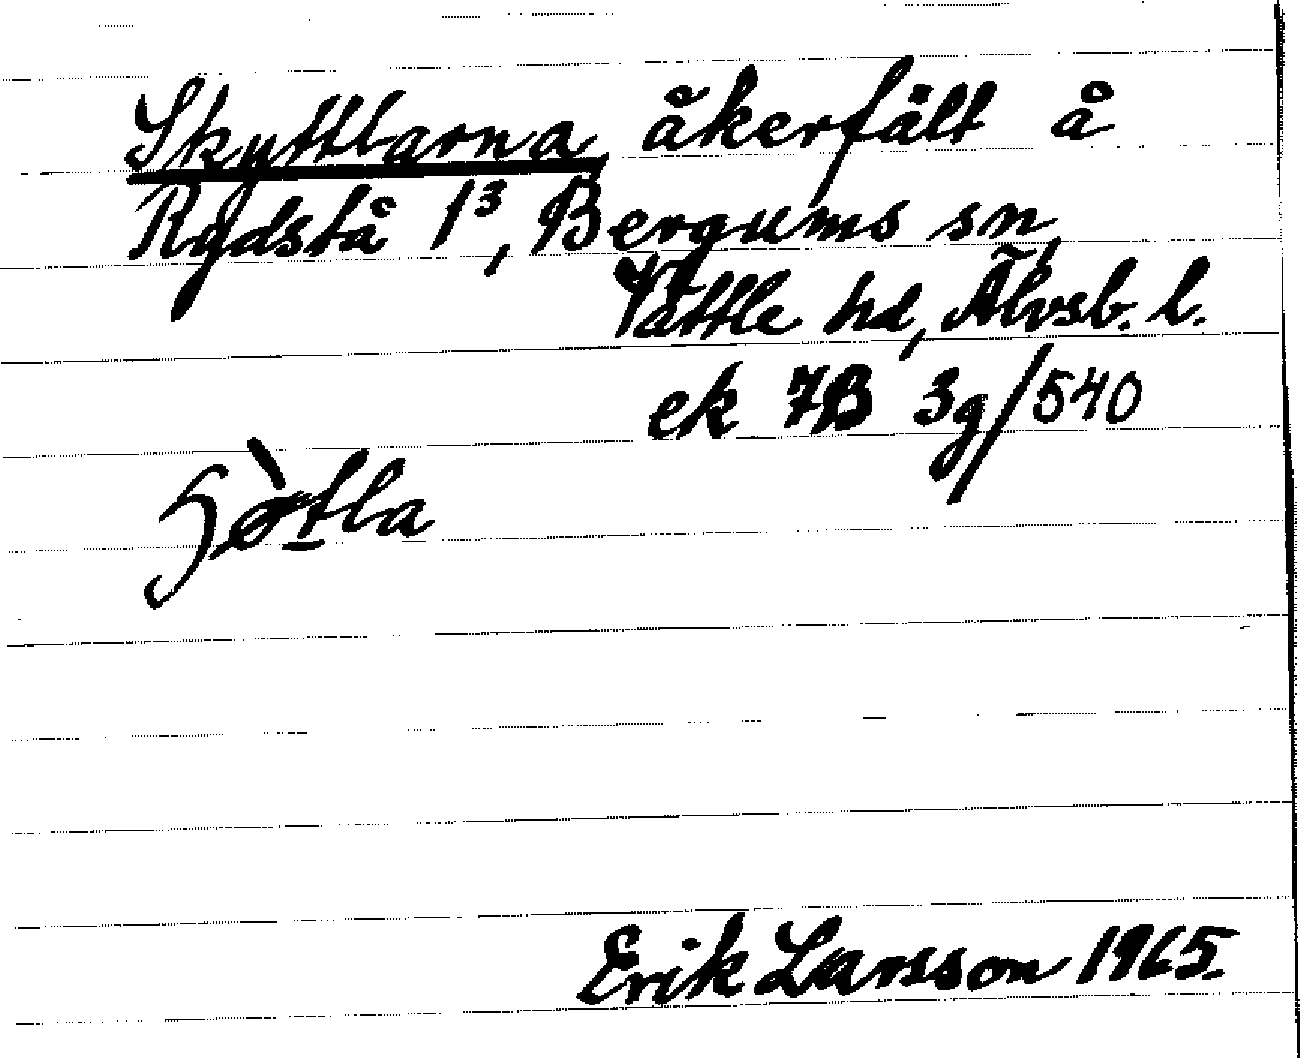 Skyttlarna åkerfält å
Rydstå 1³, Bergums sn,
Vättle hd, Älvsb. l.
ek 7B 3g/540
Erik Larsson 1965.